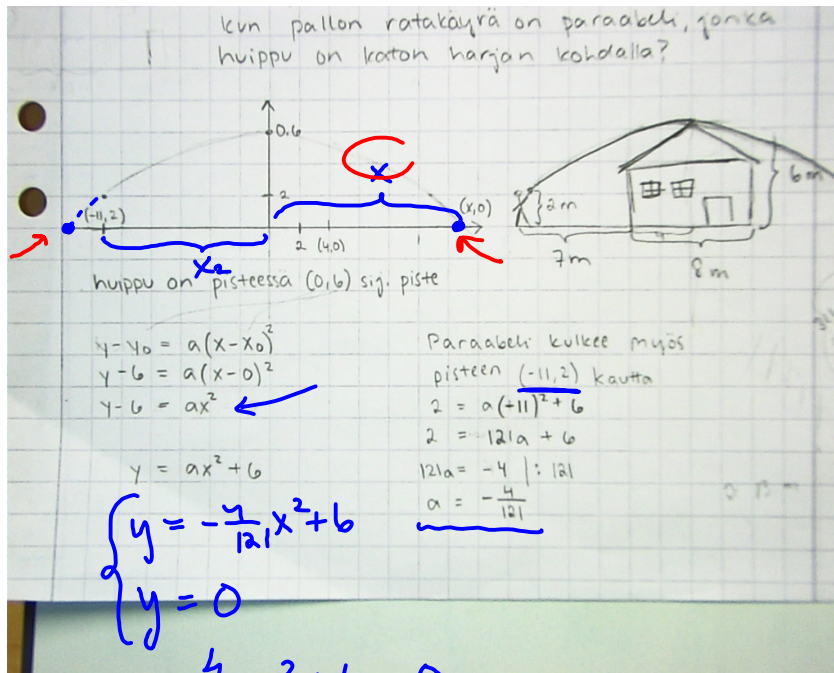 kun pallon ratakäyrä on paraabeli, jonka
huippu on katon harjan kohdalla?
0,6
x
2
(-11,2)
(x,0)
2 (4,0)
x₂
2m
6m
7m
8m
huippu on pisteessä (0,6) sij. piste
y-y₀ = a(x-x₀)²
y-6 = a(x-0)²
y-6 = ax²
y = ax²+6
Paraabeli kulkee myös
pisteen (-11,2) kautta
2 = a(-11)²+6
2 = 121a + 6
121a = -4 |:121
a = -4/121
y = -4/121 x²+6
y = 0